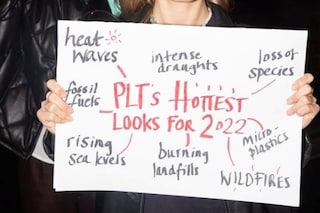 heat
waves
intense
draughts
loss of
species
fossil
fuels
PLT's HOTTEST
LOOKS FOR 2022
rising
sea levels
burning
landfills
micro
plastics
WILDFIRES